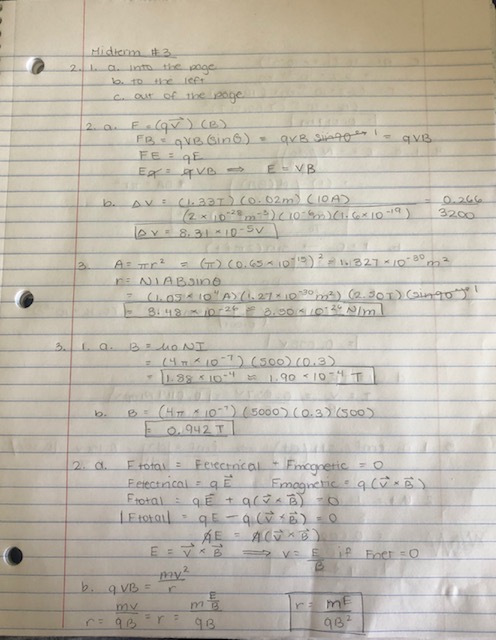 Midterm #3
2. 1. a. into the page
b. to the left
c. out of the page
2. a. F = (qv⃗) (B)
FB = qVB (sinθ) = qVB sin90° 1 = qVB
FE = qE
Eq = qVB ⟹ E = VB
b. ΔV = (1.33T) (0.02m) (10A) = 0.266
(2 × 10⁻²⁸ m⁻³) (10⁻³m) (1.6 × 10⁻¹⁹) 3200
ΔV = 8.31 × 10⁻⁵ V
3. A = πr² = (π) (0.65 × 10⁻¹⁵)² = 1.327 × 10⁻³⁰ m²
r = NIAB sinθ
= (1.05 × 10⁴ A) (1.27 × 10⁻³⁰ m²) (2.50T) (sin90°) 1
= 3.48 × 10⁻²⁶ ≈ 3.50 × 10⁻²⁶ N/m
3. 1. a. B = μ0 NI
= (4π × 10⁻⁷) (500) (0.3)
= 1.88 × 10⁻⁴ ≈ 1.90 × 10⁻⁴ T
b. B = (4π × 10⁻⁷) (5000) (0.3) (500)
= 0.942 T
2. a. Ftotal = Felectrical + Fmagnetic = 0
Felectrical = qE⃗ Fmagnetic = q (v⃗ × B⃗)
Ftotal = qE⃗ + q (v⃗ × B⃗) = 0
|Ftotal| = qE - q (v⃗ × B⃗) = 0
qE = q (v⃗ × B⃗)
E = v⃗ × B⃗ ⟹ v = E/B if Fnet = 0
b. qVB = mv²/r
r = mv/qB = r = m E/B / qB r = mE/qB²